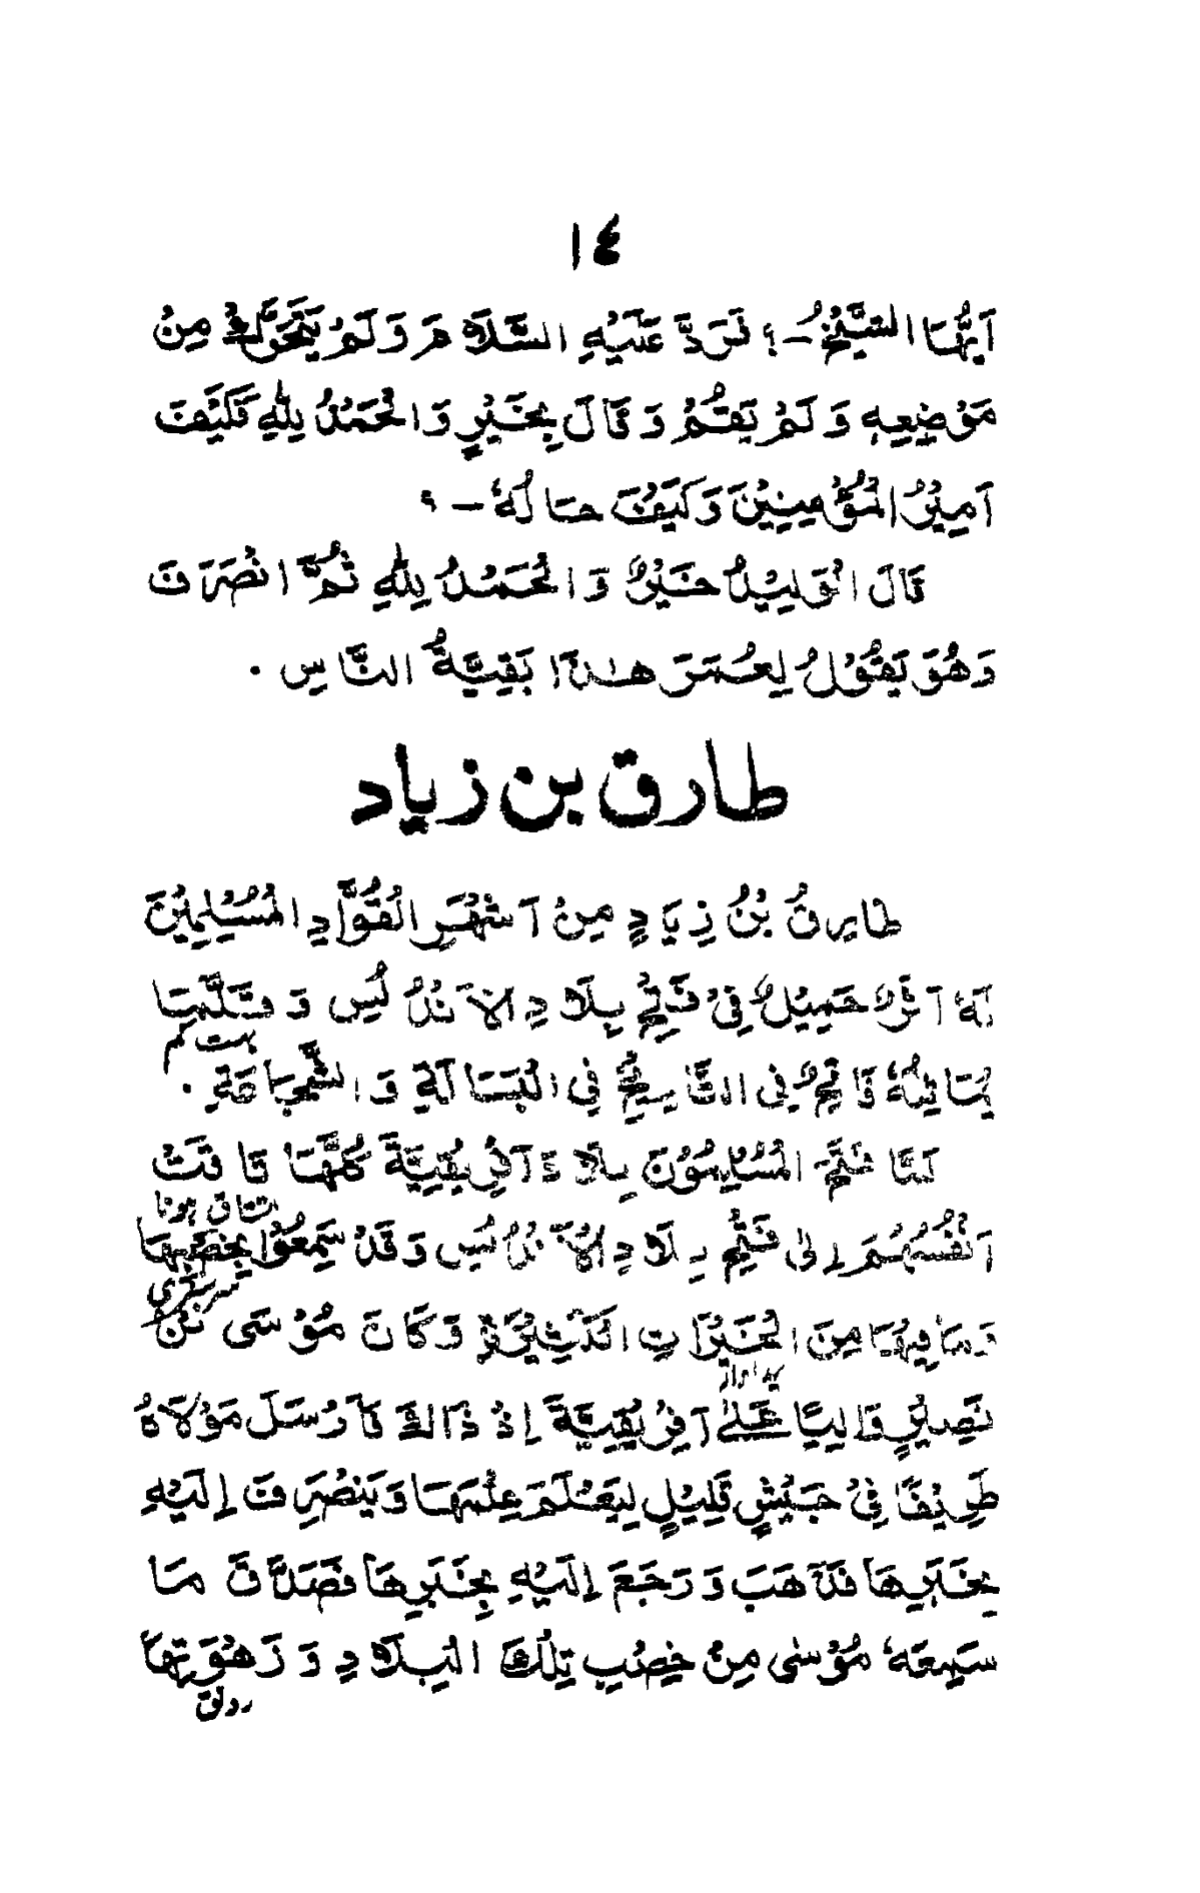 ١٤
اَيُّهَا الشَّيْخُ - ؟ فَرَدَّ عَلَيْهِ السَّلَامَ وَلَمْ يَتَحَرَّكْ مِنْ
مَوْضِعِهٖ وَلَمْ يَقُمْ وَقَالَ بِخَيْرٍ وَالْحَمْدُ لِلّٰهِ فَكَيْفَ
اَمِيْرُ الْمُؤْمِنِيْنَ وَكَيْفَ حَالُهٗ - ؟
قَالَ الْوَلِيْدُ خَيْرٌ وَالْحَمْدُ لِلّٰهِ ثُمَّ انْصَرَفَ
وَهُوَ يَقُوْلُ لِعُمَرَ هٰذَا بَقِيَّةُ النَّاسِ ۔
طارق بن زياد
طَارِقُ بْنُ زِيَادٍ مِنْ اَشْهَرِ الْقُوَّادِ الْمُسْلِمِيْنَ
لَهٗ اَثَرٌ جَمِيْلٌ فِيْ فَتْحِ بِلَادِ الْاَنْدُلُسِ وَقَلَّمَا
بہت کم
يُمَاثِلُهٗ فَاتِحٌ فِي التَّارِيْخِ فِي الْبَسَالَةِ وَالشَّجَاعَةِ ۔
لَمَّا فَتَحَ الْمُسْلِمُوْنَ بِلَادَ اَفْرِيْقِيَّةَ كُلَّهَا تَاقَتْ
مشتاق ہونا
اَنْفُسُهُمْ اِلٰى فَتْحِ بِلَادِ الْاَنْدُلُسِ وَقَدْ سَمِعُوْا بِخِصْبِهَا
سرسبزی
وَمَا فِيْهَا مِنَ الْخَيْرَاتِ الْكَثِيْرَةِ وَكَانَ مُوْسَى بْنُ
نَصِيْرٍ وَالِيًا عَلٰى اَفْرِيْقِيَّةَ اِذْ ذَاكَ فَاَرْسَلَ مَوْلَاهُ
طَرِيْفًا فِيْ جَيْشٍ قَلِيْلٍ لِيَعْلَمَ عِلْمَهَا وَيَنْصَرِفَ اِلَيْهِ
بِخَبَرِهَا فَذَهَبَ وَرَجَعَ اِلَيْهِ بِخَبَرِهَا فَصَدَّقَ مَا
سَمِعَهٗ مُوْسٰى مِنْ خِصْبِ تِلْكَ الْبِلَادِ وَزَهْوَتِهَا
رونق